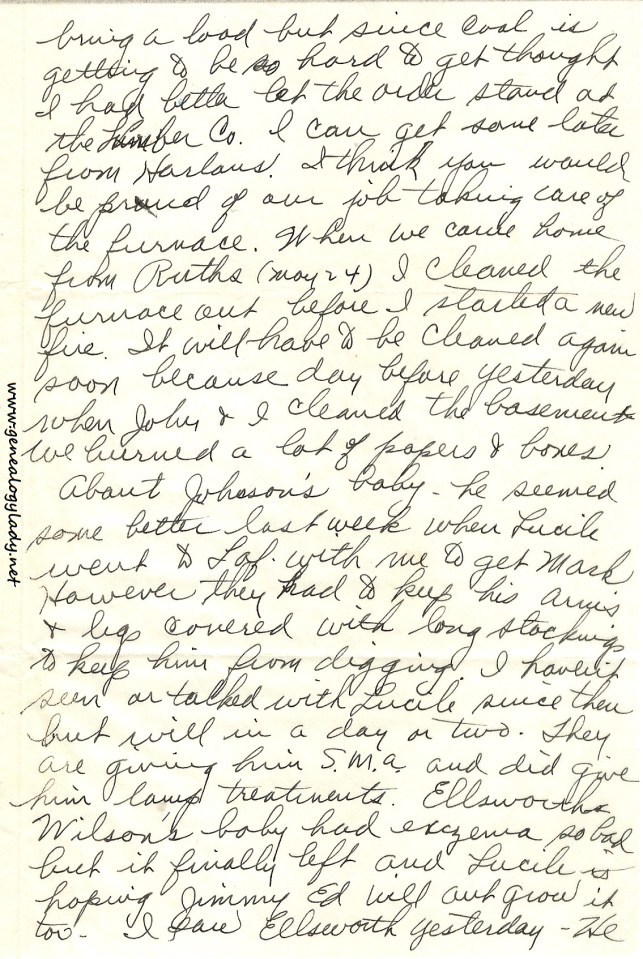 bring a load but since coal is
getting to be so hard to get thought
I had better let the order stand at
the Lumber Co. I can get some later
from Harlans. I think you would
be proud of our job taking care of
the furnace. When we came home
from Ruths (May 24) I cleaned the
furnace out before I started a new
fire. It will have to be cleaned again
soon because day before yesterday
when John & I cleaned the basement
we burned a lot of papers & boxes
About Johnson's baby - he seemed
some better last week when Lucile
went to Laf. with me to get Mark
However they had to keep his arms
& legs covered with long stockings
to keep him from digging. I haven't
seen or talked with Lucile since then
but will in a day or two. They
are giving him S.M.a. and did give
him lamp treatments. Ellsworth
Wilsons baby had exczema so bad
but it finally left and Lucile is
hoping Jimmy Ed will out grow it
too - I saw Ellsworth yesterday - He
www.genealogylady.net